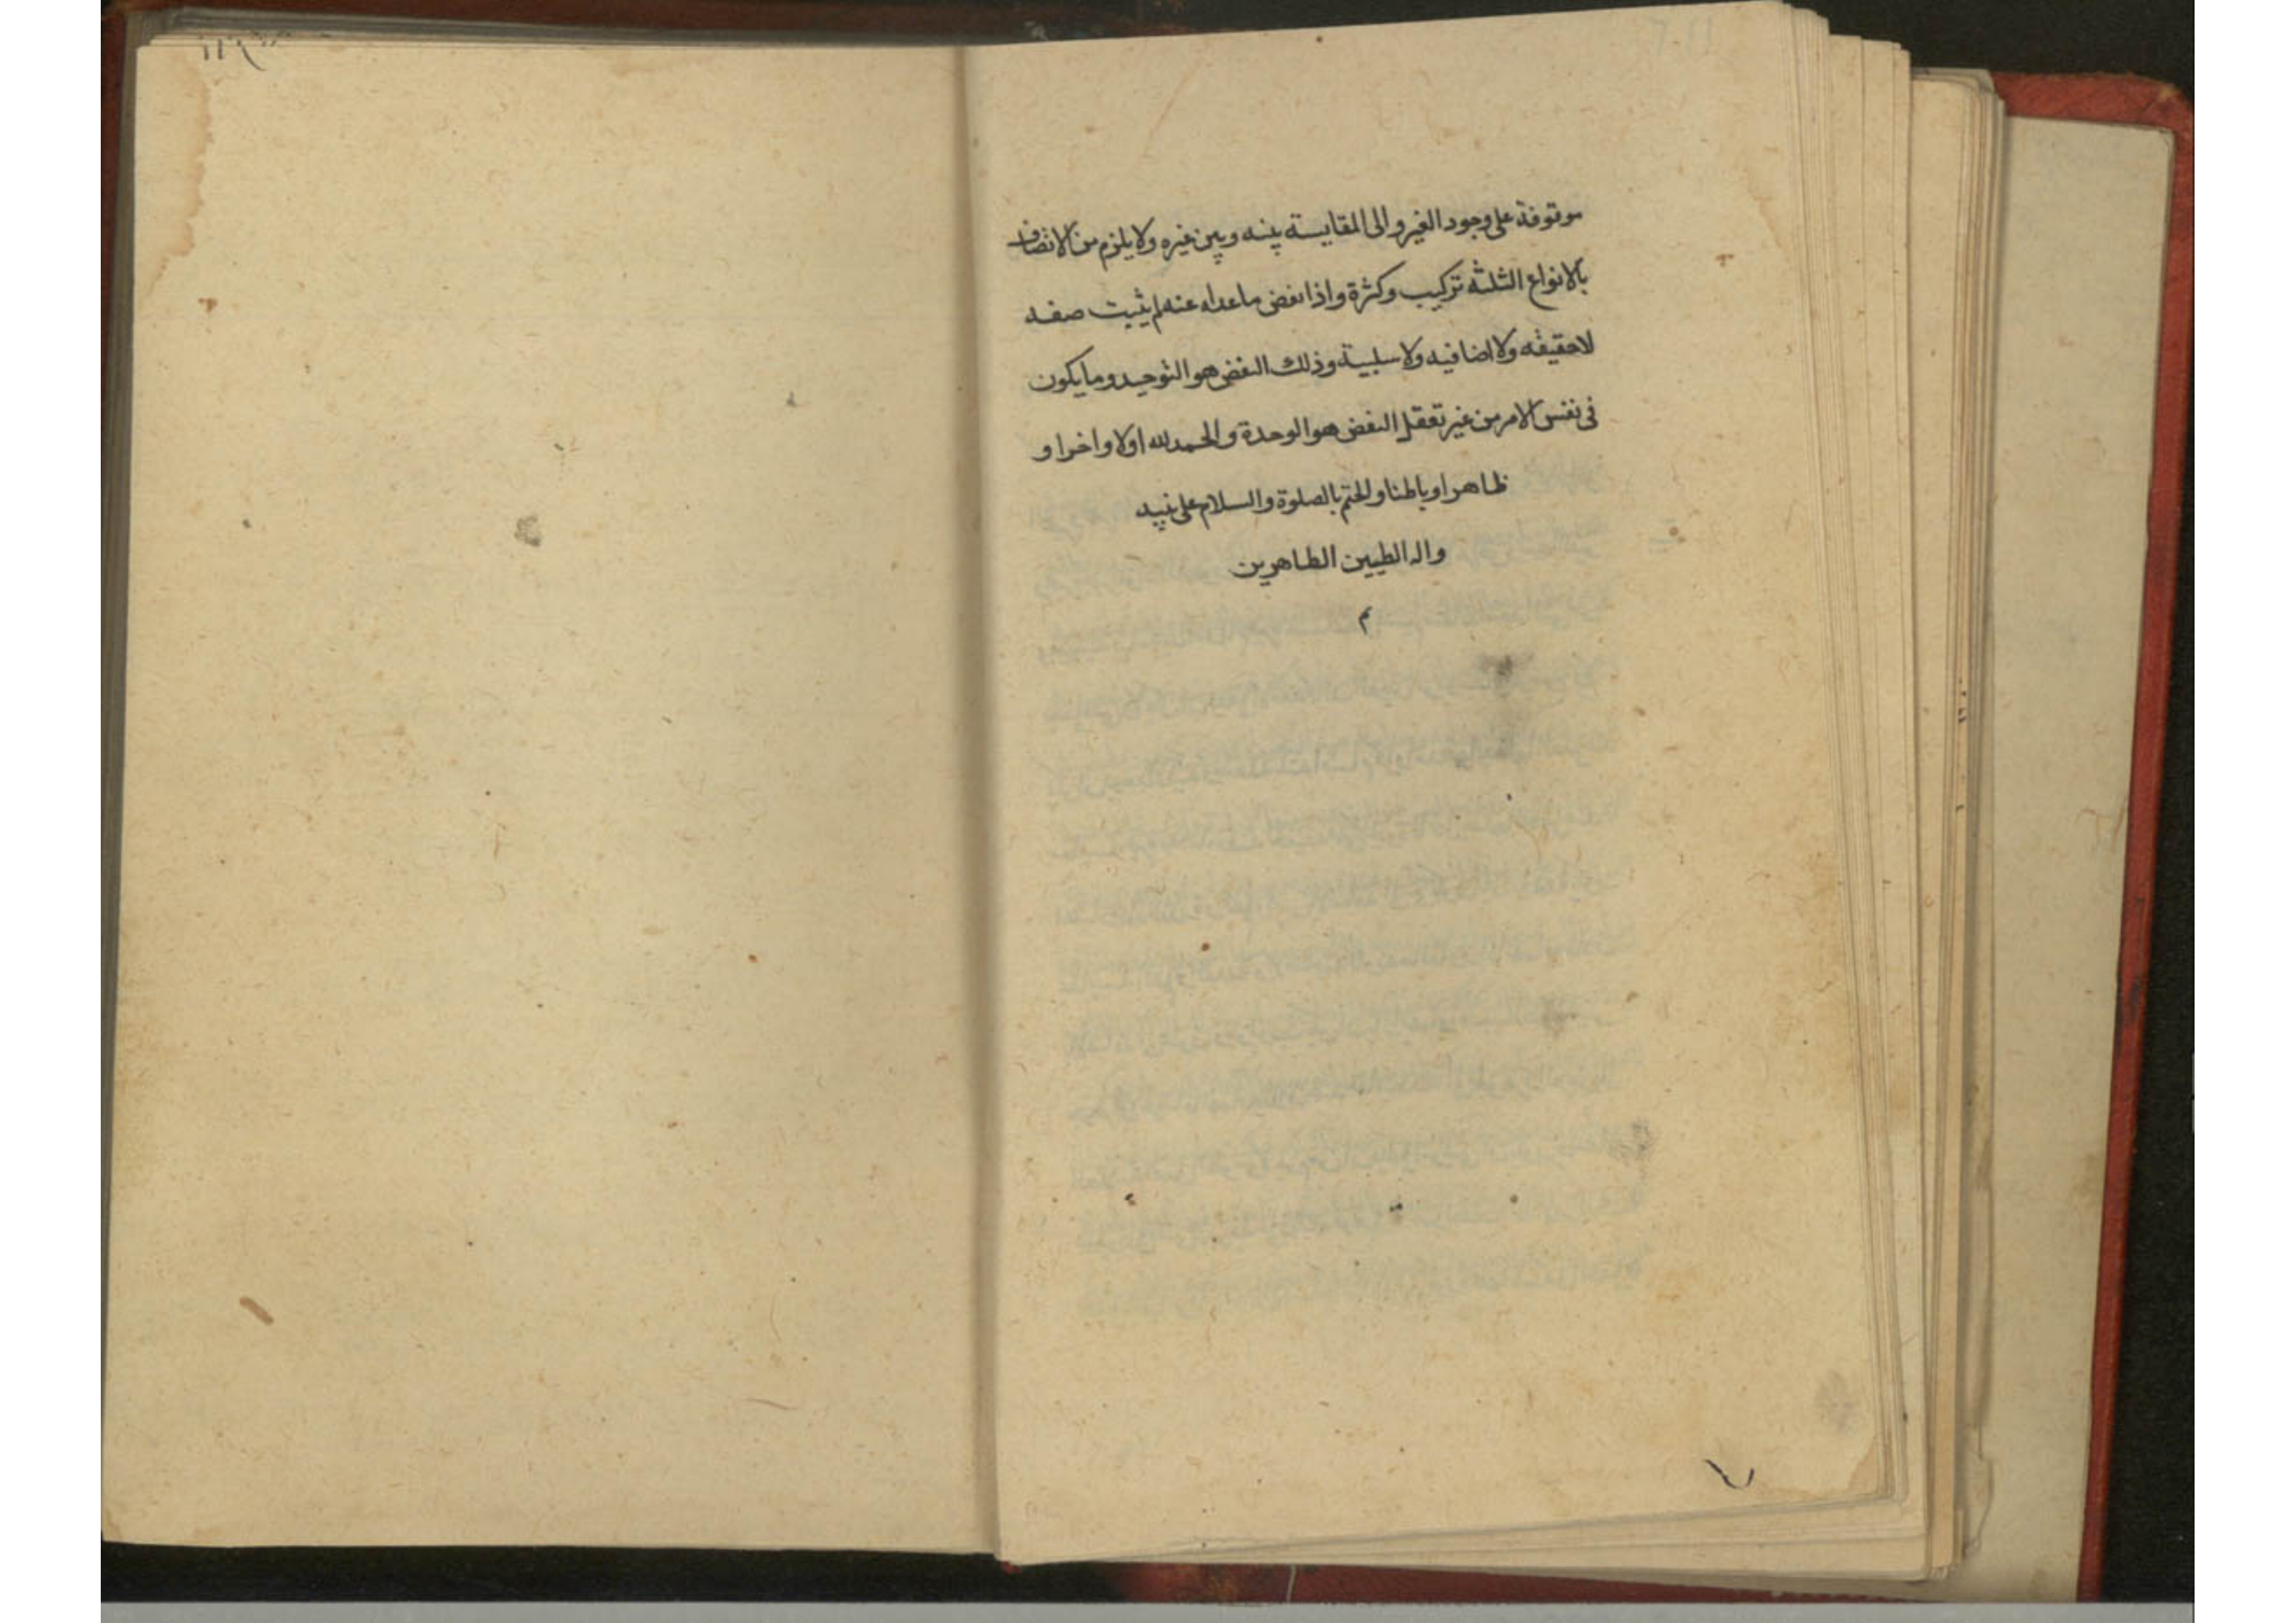 موقوفة على وجود الغير والى المقايسة بينه وبين غيره ولا يلزم من الاتصاف
بالانواع الثلثه تركيب وكثرة واذا نفض ما عداه عنه لم يثبت صفه
لا حقيقه ولا اضافيه ولا سلبية وذلك النفض هو التوحيد وما يكون
فى نفس الامر من غير تعقل النفض هو الوحدة والحمد لله اولا واخرا و
ظاهرا وباطنا والختم بالصلوة والسلام على نبيه
واله الطيبين الطاهرين
م